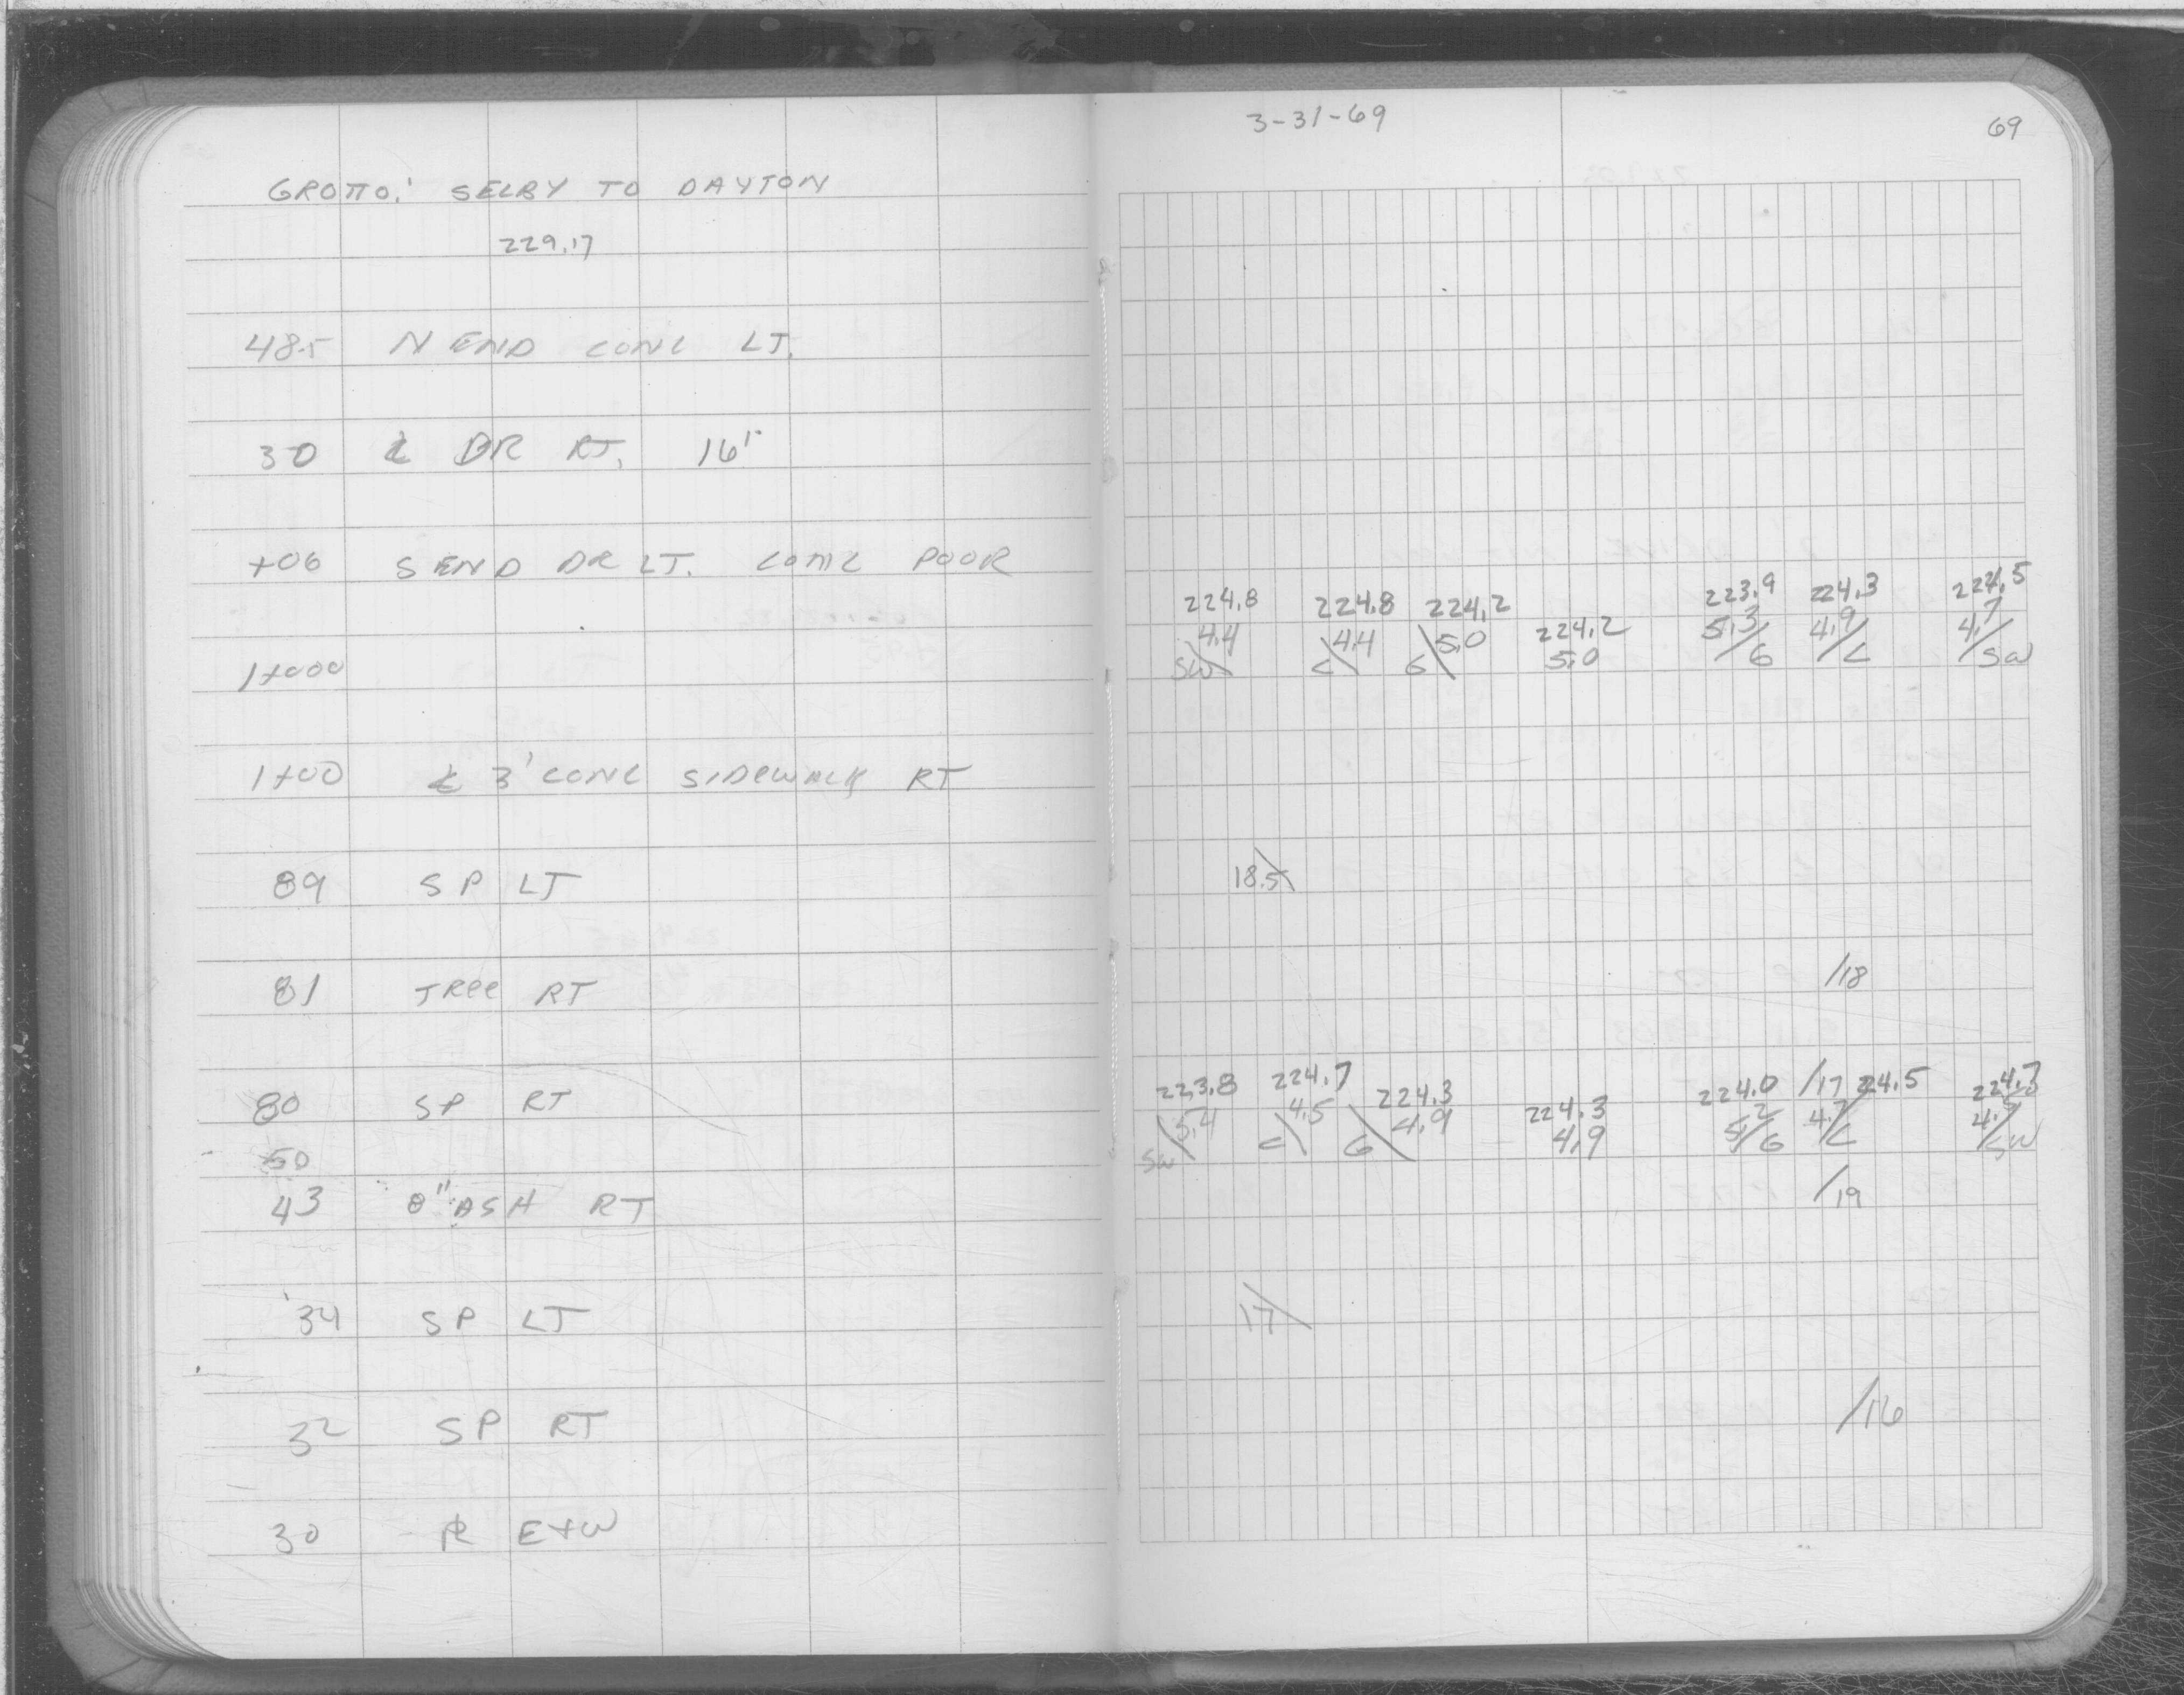 GROTTO: SELBY TO DAYTON
229.17
48.5 N END CONC LT.
30 ℄ DR RT. 16'
+06 S END DR LT. CONC POOR
1+000
1+00 ℄ 3' CONC SIDEWALK RT
89 SP LT
81 TREE RT
80 SP RT
50
43 8" ASH RT
34 SP LT
32 SP RT
30 ⅊ E+W
3-31-69
69
224.8 224.8 224.2 224.2 223.9 224.3 224.5
4.4 4.4 5.0 5.0 5.3 4.9 4.7
SW C G G C SW
18.5
/18
223.8 224.7 224.3 224.3 224.0 /17 224.5 224.7
5.4 4.5 4.9 4.9 5.2 4.7 4.5
SW C G G C SW
/19
17
/16